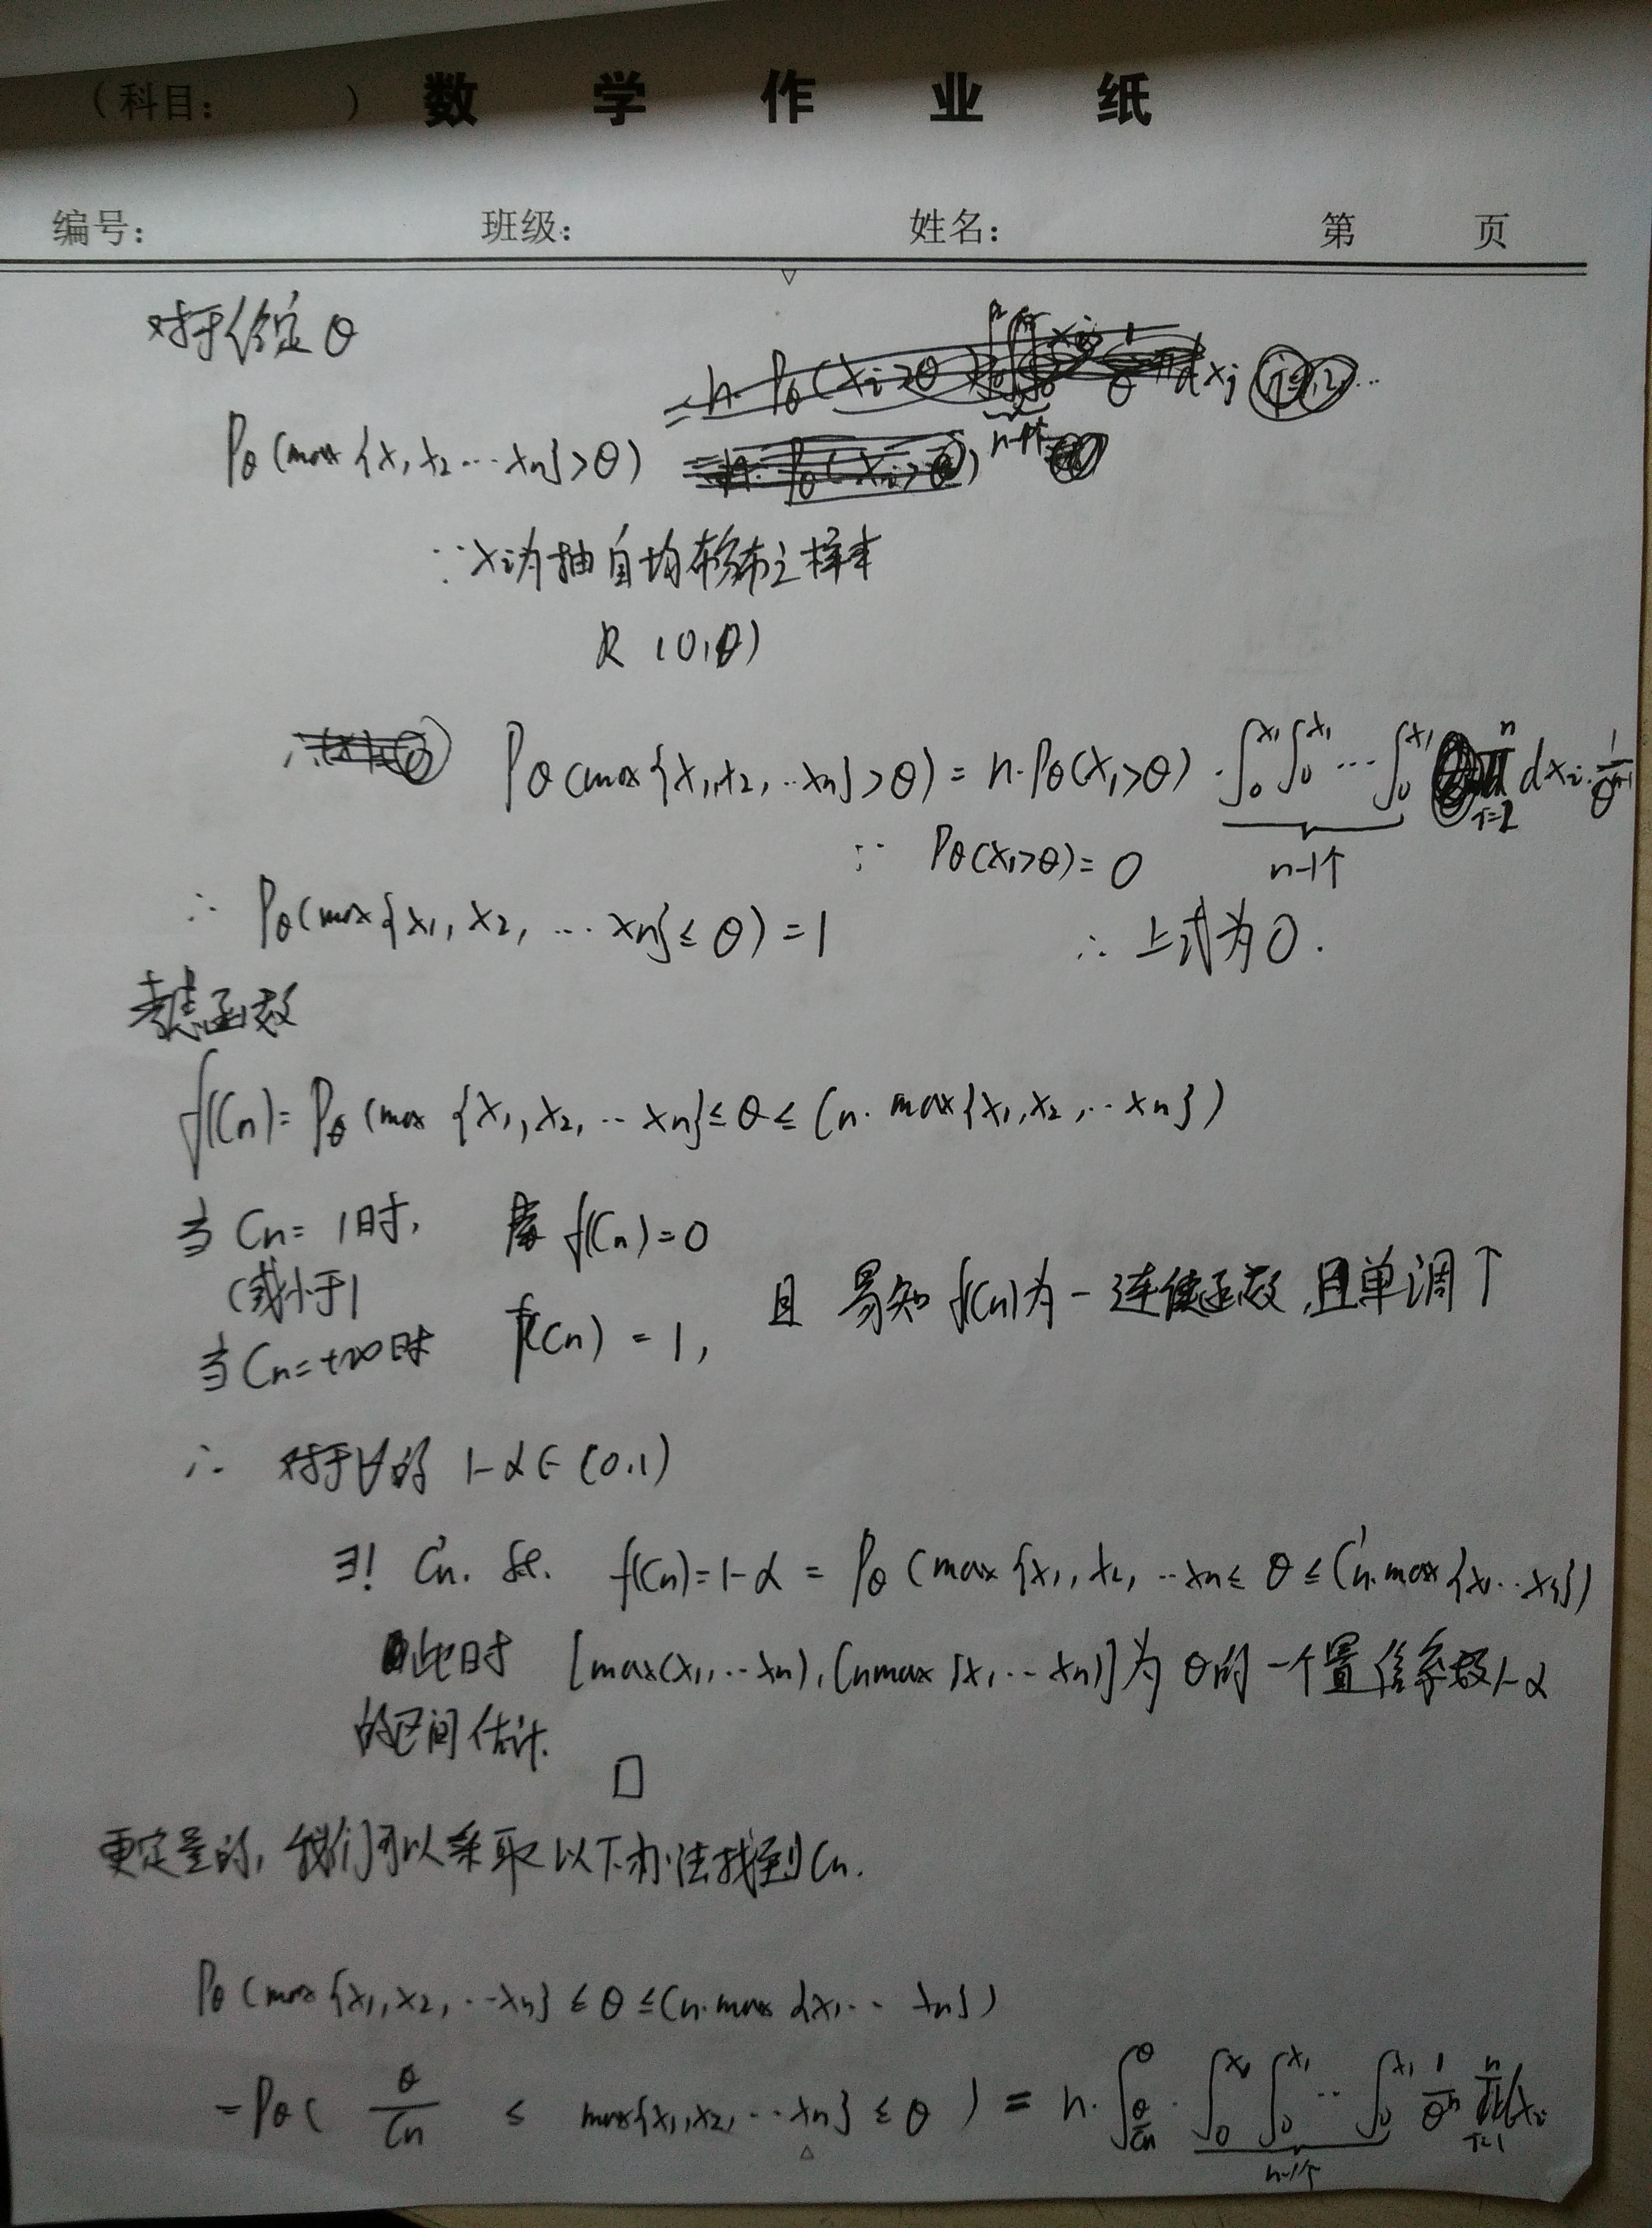 (科目: ) 数学作业纸
编号: 班级: 姓名: 第 页
对于给定θ
Pθ(max{x1 x2 … xn}>θ)
∵ xi为抽自均匀分布之样本
R (0,θ)
Pθ(max{x1,x2,…xn}>θ) = n·Pθ(x1>θ)·∫₀^x1∫₀^x1 … ∫₀^x1 ∏_{i=2}^n dxi·1/θ^(n-1)
n-1个
∵ Pθ(x1>θ)=0
∴ Pθ(max{x1,x2,…xn}≤θ)=1 ∴ 上式为0.
考虑函数
f(Cn)=Pθ(max{x1,x2,…xn}≤θ≤Cn·max{x1,x2,…xn})
当Cn=1时, f(Cn)=0
(或小于1
当Cn=+∞时 f(Cn)=1, 且易知f(Cn)为一连续函数,且单调↑
∴ 对于∀的 1-α∈(0,1)
∃! Cn'. s.t. f(Cn)=1-α=Pθ(max{x1,x2,…xn≤θ≤Cn'·max{x1…xn})
此时 [max(x1,…xn),Cnmax{x1…xn)]为θ的一个置信系数1-α
的区间估计.
□
更定量的,我们可以采取以下办法找到Cn.
Pθ(max{x1,x2,…xn}≤θ≤Cn·max{x1…xn})
=Pθ( θ/Cn ≤ max{x1,x2,…xn}≤θ ) = n·∫_{θ/Cn}^θ·∫₀^x1∫₀^x1…∫₀^x1 1/θ^n ∏_{i=1}^n dxi
n-1个